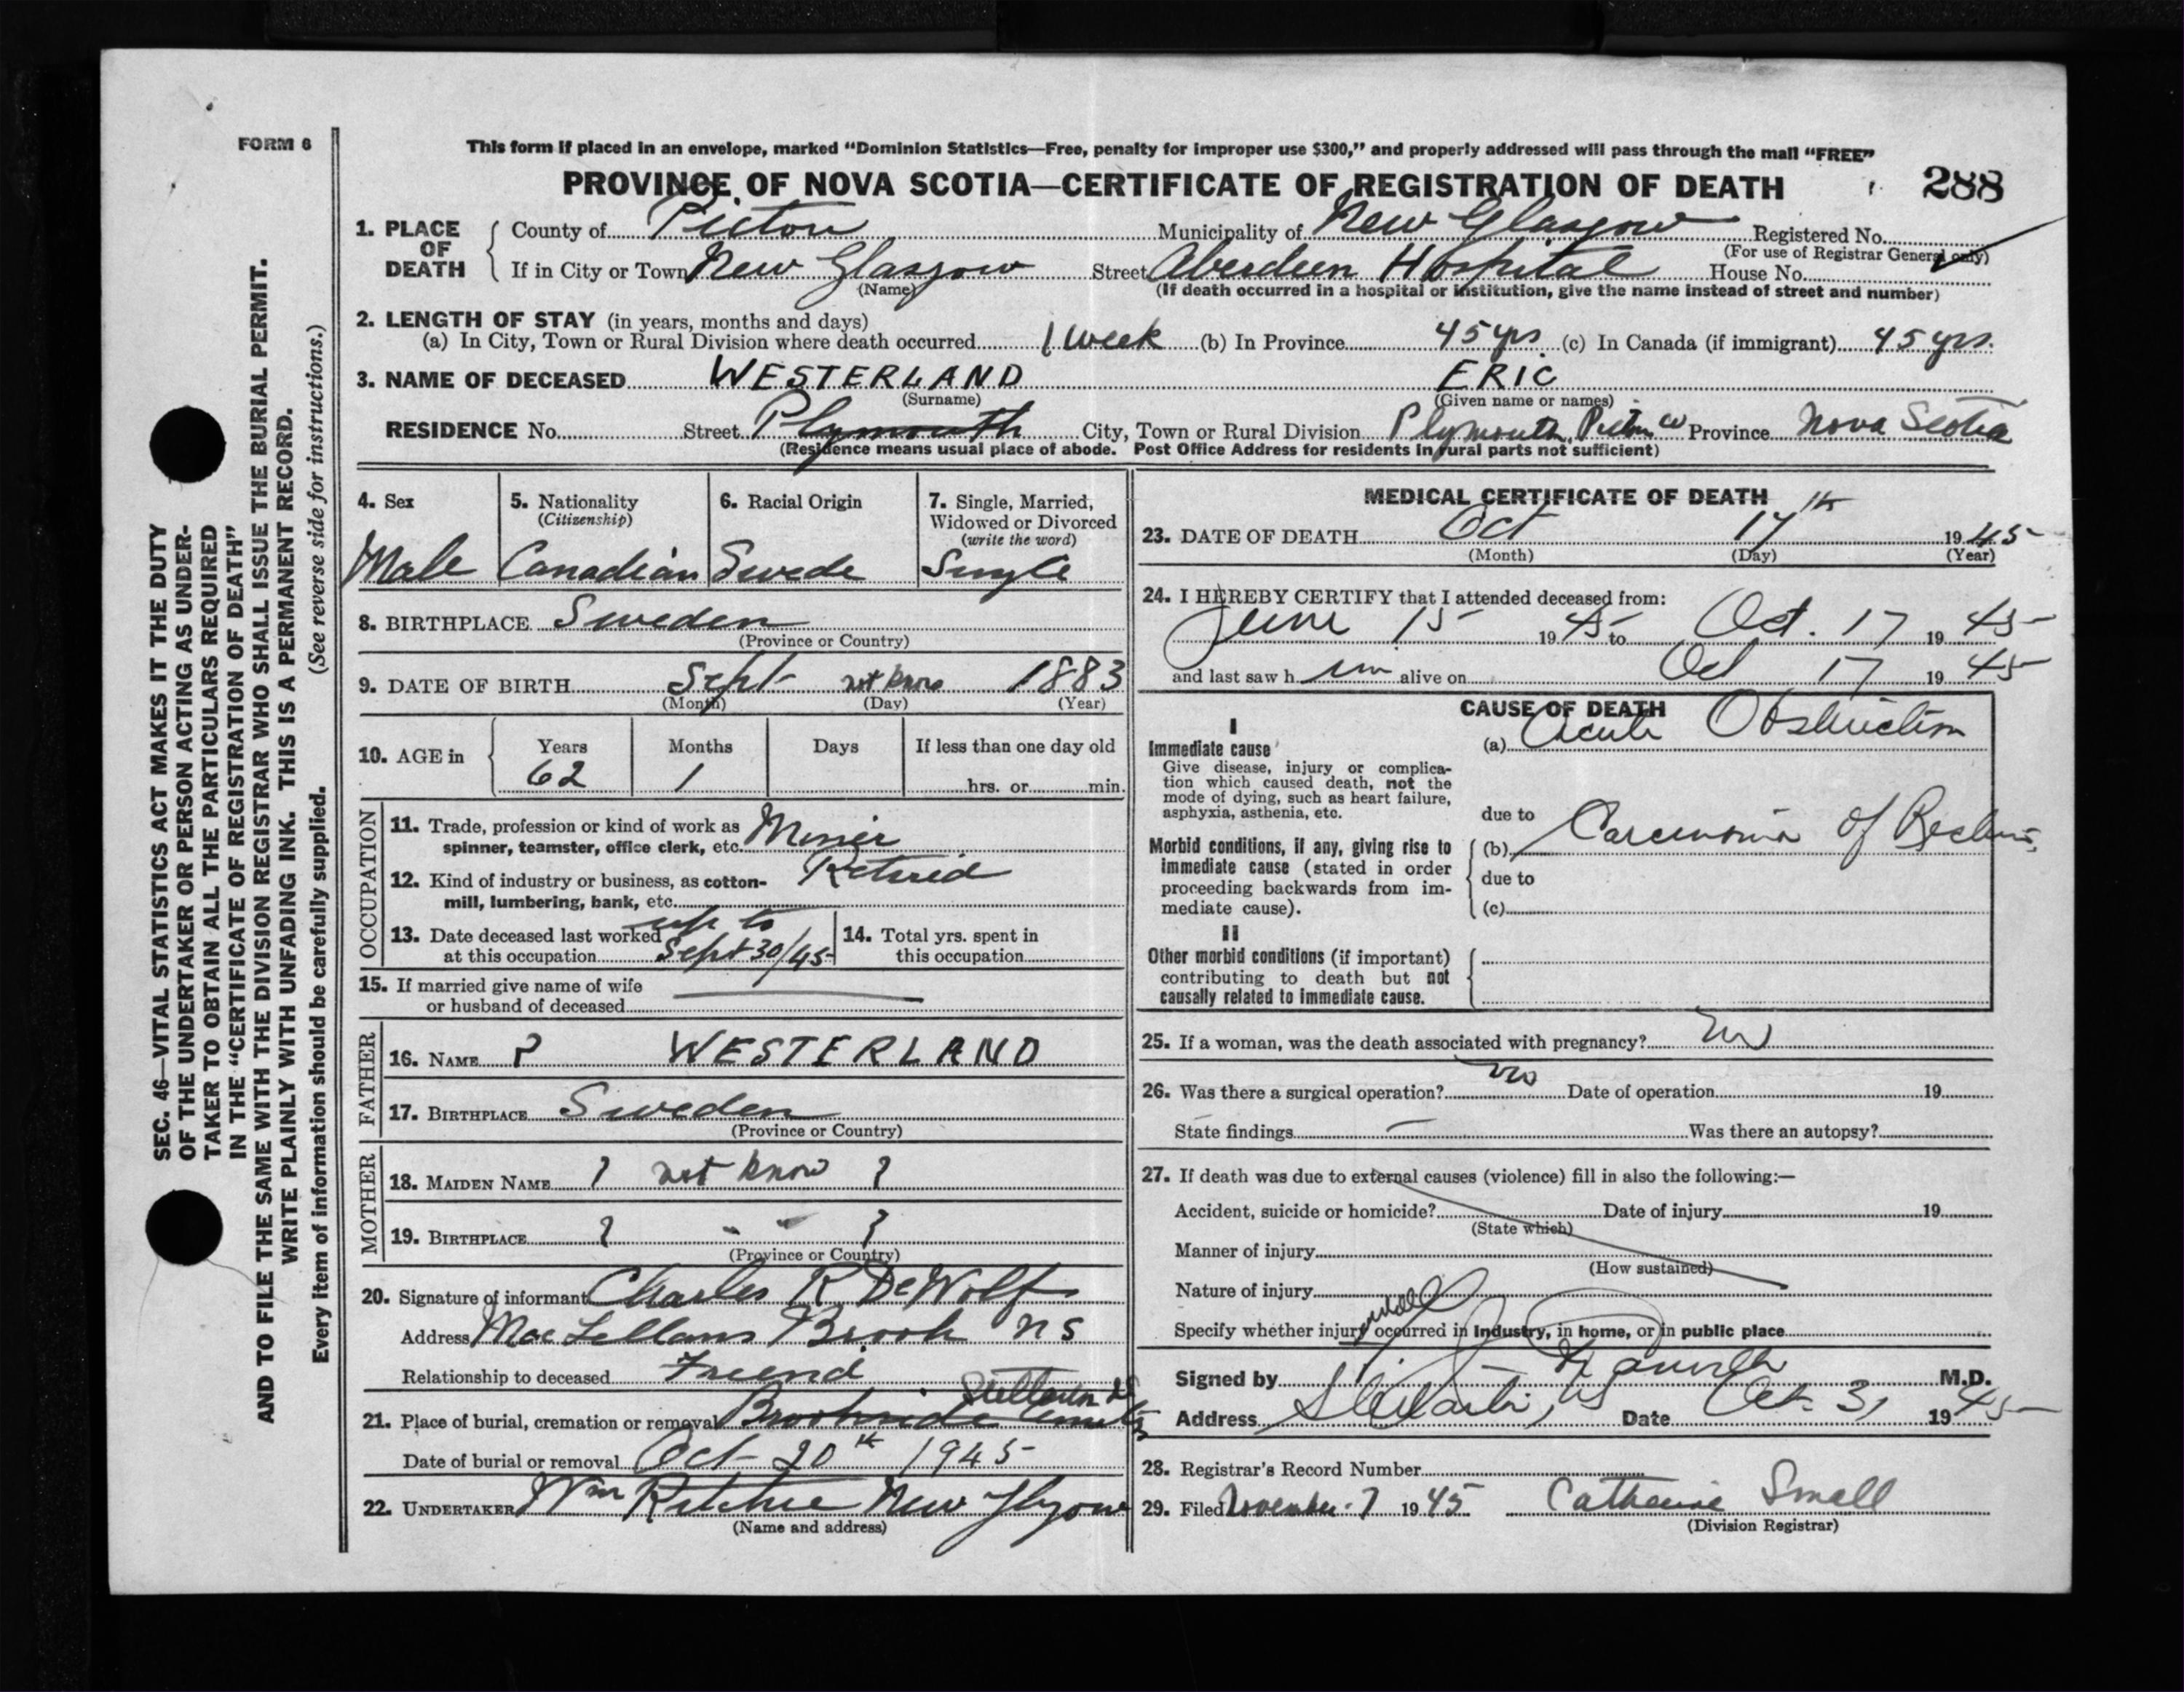 FORM 6
This form if placed in an envelope, marked “Dominion Statistics—Free, penalty for improper use $300,” and properly addressed will pass through the mail “FREE”
PROVINCE OF NOVA SCOTIA—CERTIFICATE OF REGISTRATION OF DEATH 288
1. PLACE OF DEATH
County of Pictou Municipality of New Glasgow Registered No.
(For use of Registrar General only)
If in City or Town New Glasgow Street Aberdeen Hospital House No.
(Name) (If death occurred in a hospital or institution, give the name instead of street and number)
2. LENGTH OF STAY (in years, months and days)
(a) In City, Town or Rural Division where death occurred 1 week (b) In Province 45 yrs. (c) In Canada (if immigrant) 45 yrs.
3. NAME OF DECEASED WESTERLAND ERIC
(Surname) (Given name or names)
RESIDENCE No. Street Plymouth City, Town or Rural Division Plymouth, Pictou Co Province Nova Scotia
(Residence means usual place of abode. Post Office Address for residents in rural parts not sufficient)
4. Sex 5. Nationality (Citizenship) 6. Racial Origin 7. Single, Married, Widowed or Divorced (write the word)
Male Canadian Swede Single
8. BIRTHPLACE Sweden
(Province or Country)
9. DATE OF BIRTH Sept not know 1883
(Month) (Day) (Year)
10. AGE in Years Months Days If less than one day old
62 1 hrs. or min.
OCCUPATION
11. Trade, profession or kind of work as Miner
spinner, teamster, office clerk, etc.
12. Kind of industry or business, as cotton- Retired
mill, lumbering, bank, etc.
13. Date deceased last worked up to
at this occupation Sept 30/45
14. Total yrs. spent in
this occupation
15. If married give name of wife
or husband of deceased
FATHER
16. NAME ? WESTERLAND
17. BIRTHPLACE Sweden
(Province or Country)
MOTHER
18. MAIDEN NAME ? not know ?
19. BIRTHPLACE ? " " ?
(Province or Country)
20. Signature of informant Charles R DeWolf
Address MacLellans Brook NS
Relationship to deceased Friend
Stellarton
21. Place of burial, cremation or removal Brookside
Date of burial or removal Oct 20th 1945
22. UNDERTAKER Wm Ritchie New Glasgow
(Name and address)
MEDICAL CERTIFICATE OF DEATH
23. DATE OF DEATH Oct 17th 1945
(Month) (Day) (Year)
24. I HEREBY CERTIFY that I attended deceased from:
June 15 1945 to Oct. 17 1945
and last saw h im alive on Oct 17 1945
CAUSE OF DEATH
I
Immediate cause (a) Acute Obstruction
Give disease, injury or complica-
tion which caused death, not the
mode of dying, such as heart failure,
asphyxia, asthenia, etc.
due to
Morbid conditions, if any, giving rise to
immediate cause (stated in order
proceeding backwards from im-
mediate cause).
(b) Carcinoma of Rectum
due to
(c)
II
Other morbid conditions (if important)
contributing to death but not
causally related to immediate cause.
25. If a woman, was the death associated with pregnancy? no
26. Was there a surgical operation? no Date of operation 19
State findings — Was there an autopsy?
27. If death was due to external causes (violence) fill in also the following:—
Accident, suicide or homicide? Date of injury 19
(State which)
Manner of injury
(How sustained)
Nature of injury
Specify whether injury occurred in Industry, in home, or in public place
Signed by M.D.
Address Stellarton, NS Date Oct. 31 1945
28. Registrar's Record Number
29. Filed November 7 1945 Catherine Small
(Division Registrar)
SEC. 46—VITAL STATISTICS ACT MAKES IT THE DUTY
OF THE UNDERTAKER OR PERSON ACTING AS UNDER-
TAKER TO OBTAIN ALL THE PARTICULARS REQUIRED
IN THE “CERTIFICATE OF REGISTRATION OF DEATH”
AND TO FILE THE SAME WITH THE DIVISION REGISTRAR WHO SHALL ISSUE THE BURIAL PERMIT.
WRITE PLAINLY WITH UNFADING INK. THIS IS A PERMANENT RECORD.
Every item of information should be carefully supplied. (See reverse side for instructions.)